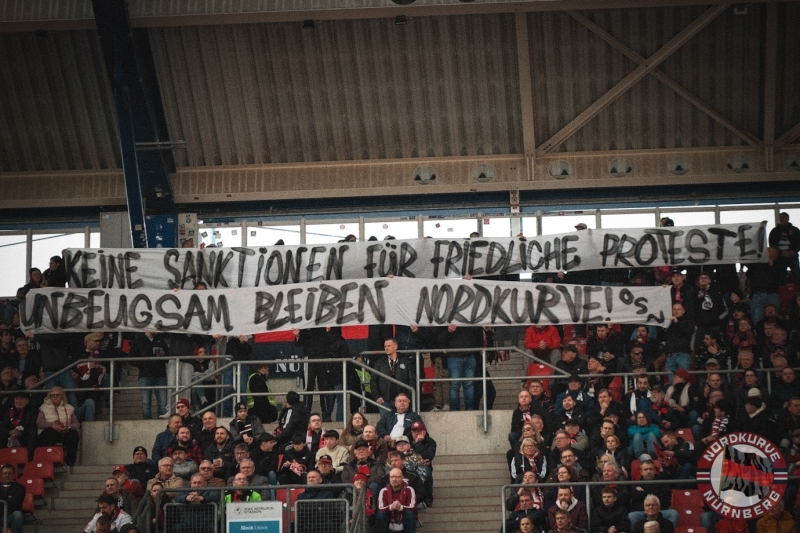 KEINE SANKTIONEN FÜR FRIEDLICHE PROTESTE!
UNBEUGSAM BLEIBEN NORDKURVE!
NÜ
Block
NORDKURVE
NÜRNBERG